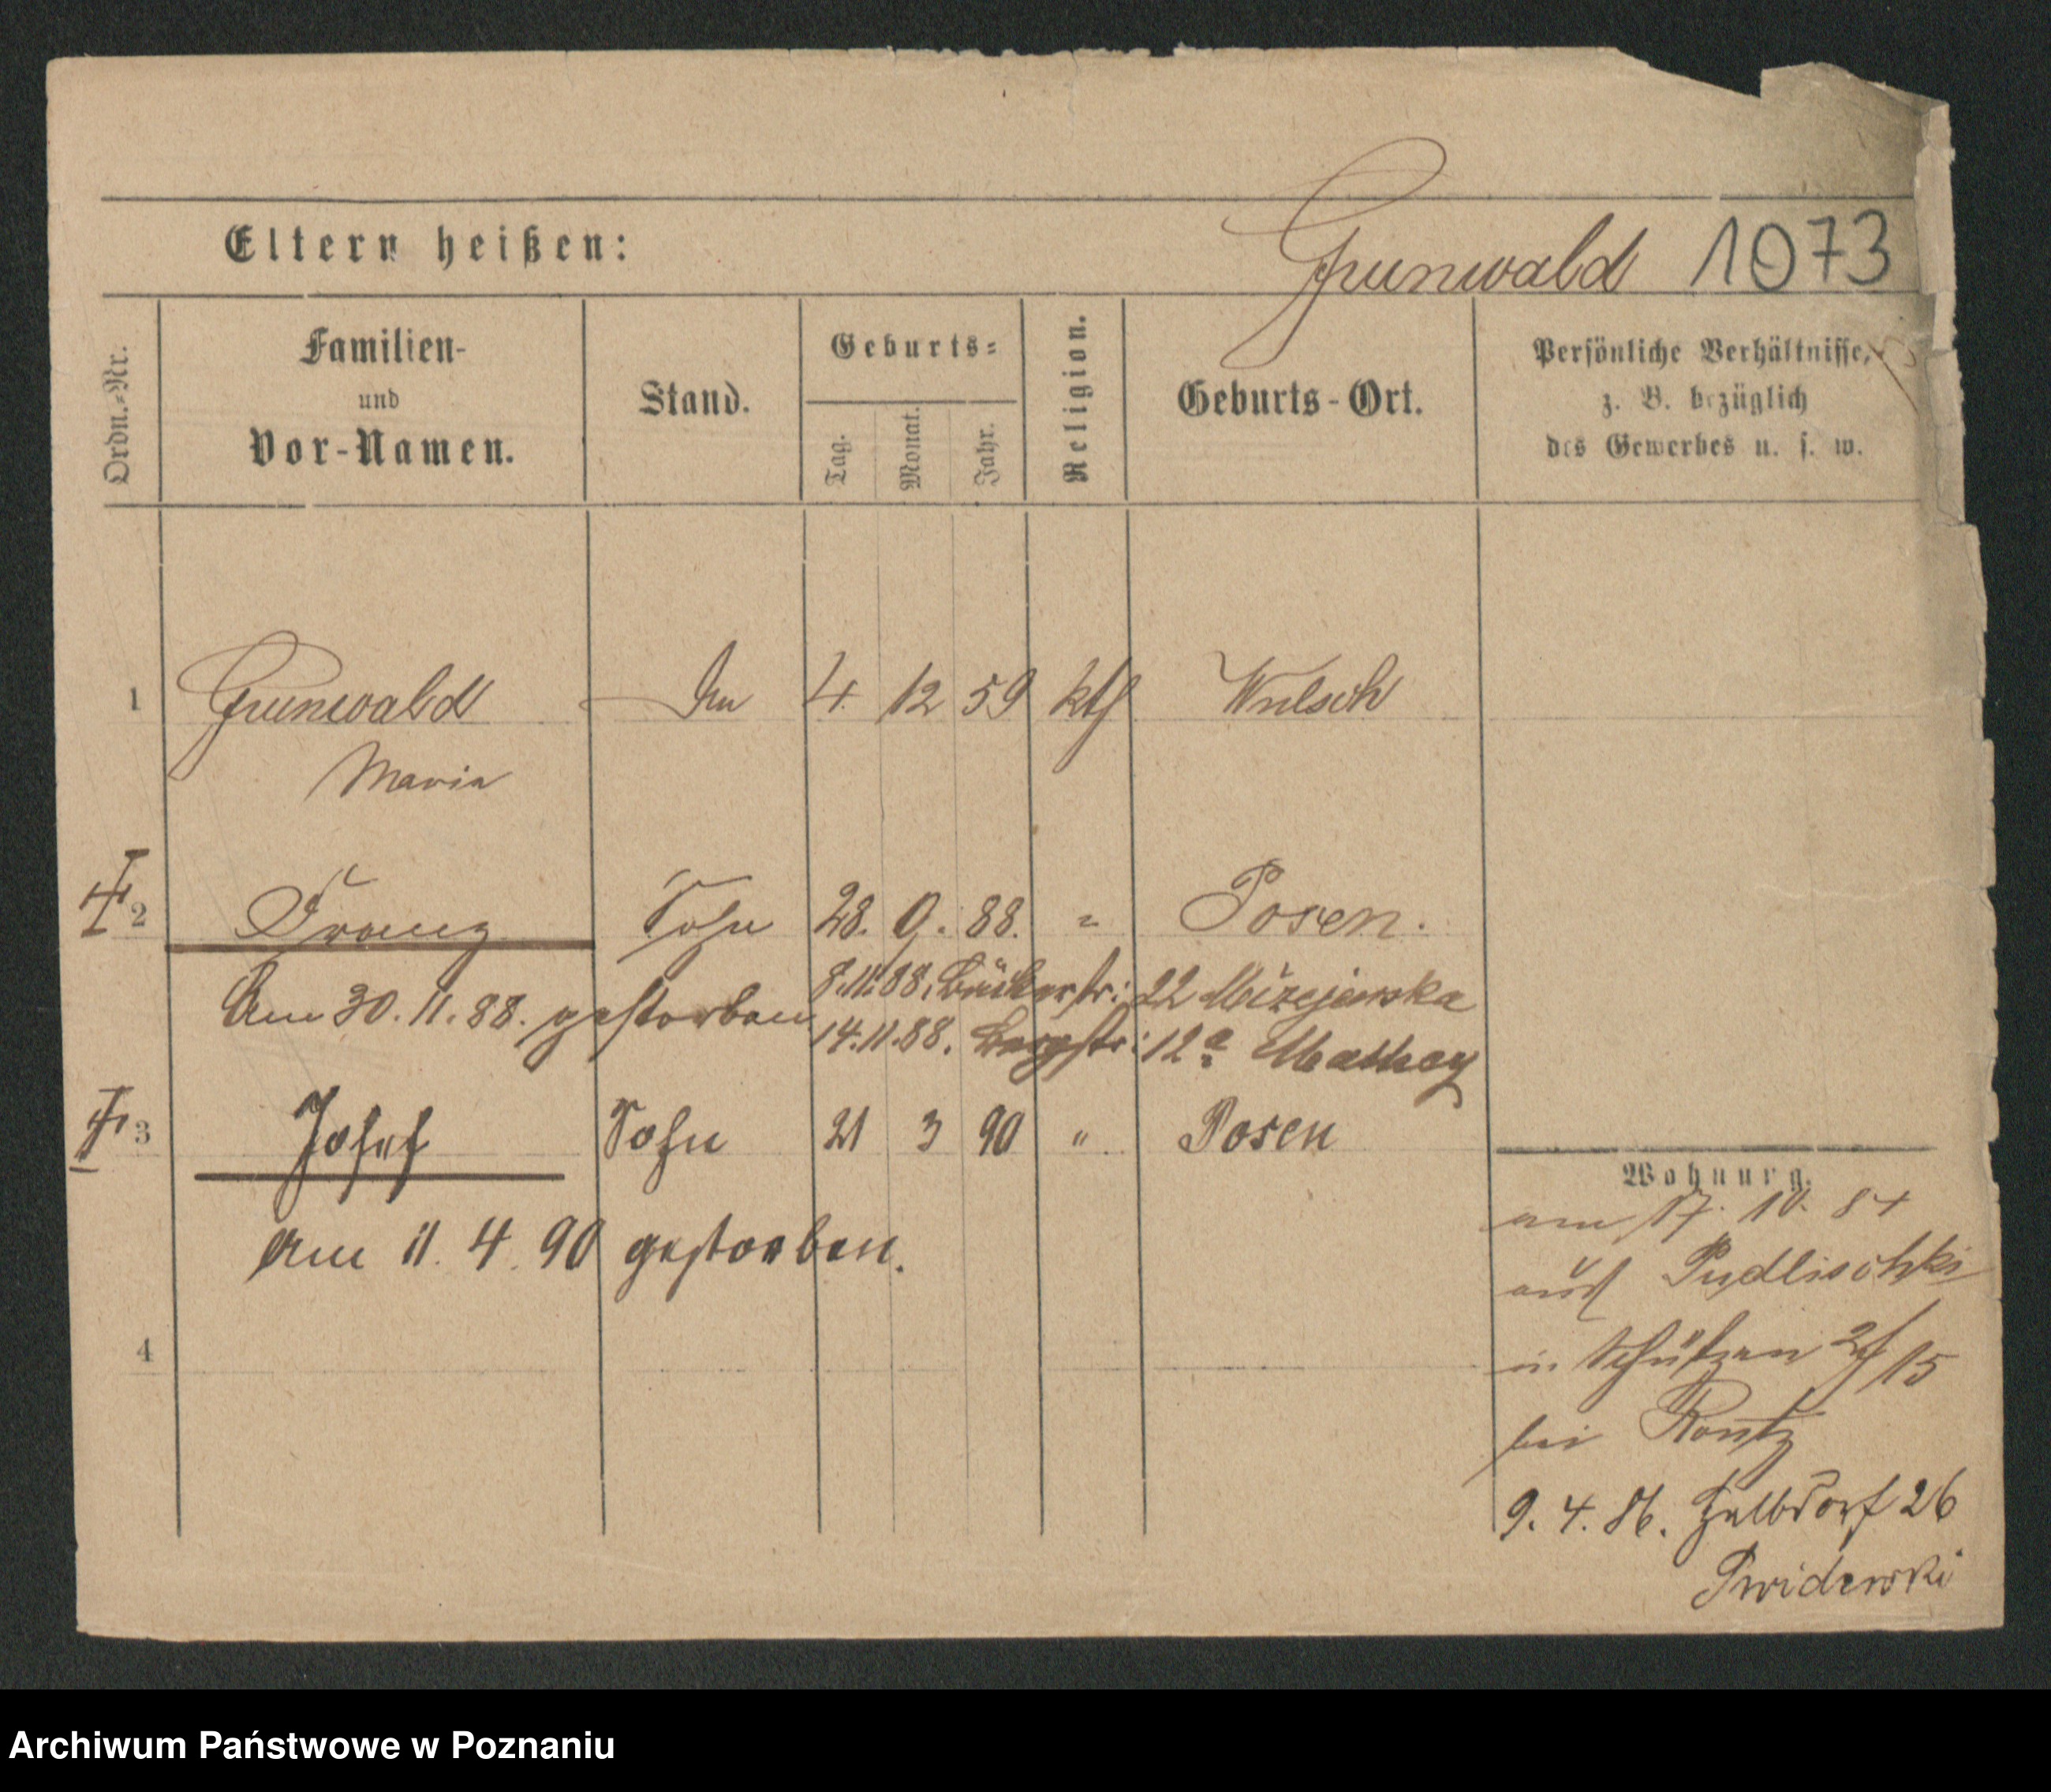 Eltern heißen:
Grunwald 1073
Ordn.-Nr.
Familien-
und
Vor-Namen.
Stand.
Geburts-
Tag.
Monat.
Jahr.
Religion.
Geburts-Ort.
Persönliche Verhältnisse,
z. B. bezüglich
des Gewerbes u. s. w.
1 Grunwald 4. 12 59 kth
Maria
2 Franz Sohn 28. 9. 88. " Posen.
Am 30.11.88. gestorben
8.11.88. Bäckerstr: 22
14.11.88. Bergstr: 12a
3 Josef Sohn 21 3 90 " Posen
am 11. 4. 90 gestorben.
4
Wohnung.
am 17. 10. 84
aus Pudlischki
in Schützen 15
bei
9. 4. 86. Halbdorf 26
Archiwum Państwowe w Poznaniu